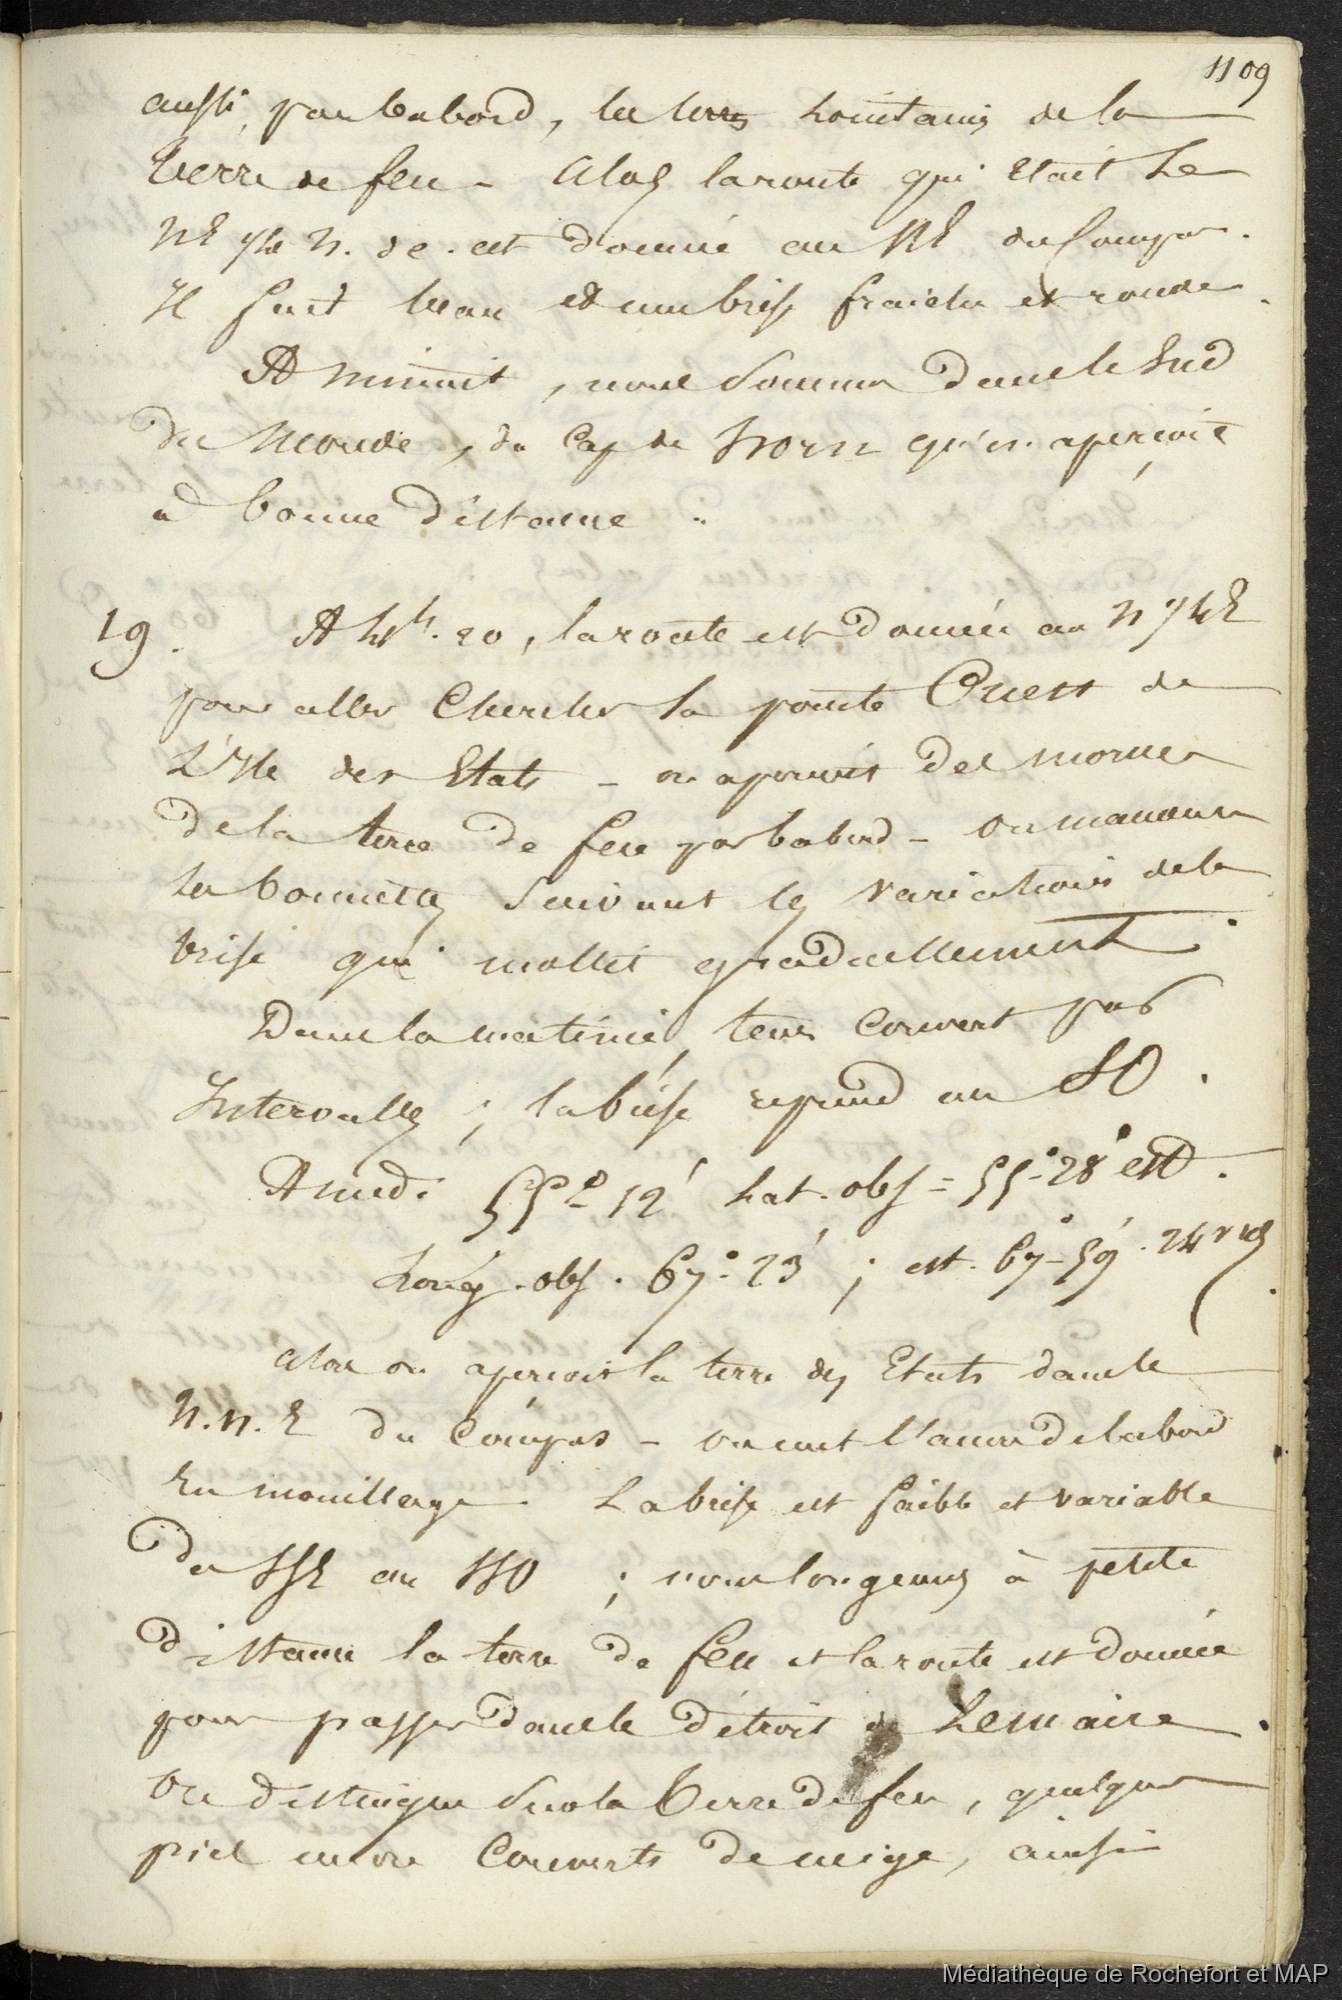 1109
aussi, par babord, les terres lointaines de la
terre de feu - alors la route qui Etait le
NE 1/4 N. de c. est donnée au NE du Compas.
Il fait beau et une brise fraiche et ronde.
A minuit, nous sommes dans le Sud
du Monde, du Cap de Horn qu'on aperçoit
à bonne distance.
19. A 4h. 20, la route est donnée au N 1/4 E
pour aller chercher la pointe Ouest de
L'Ile des Etats - on aperçoit des mornes
de la terre de feu par babord - on manœuvre
les bonnettes suivant les variations de la
brise qui mollit graduellement.
Dans la matinée, tems couvert par
Intervalles ; la brise reprend au SO.
A midi 55°- 12' Lat. obs = 55°- 28' est.
Long. obs. 67°- 23' ; est. 67°- 59'.
alors on aperçoit la terre des Etats dans le
N.N.E du Compas - on met l'ancre de babord
En mouillage. La brise est faible et variable
du SSE au SSO ; nous longeons à petite
distance la terre de feu et la route est donnée
pour passer dans le détroit de Lemaire.
On distingue sur la Terre de feu, quelques
pics encore couverts de neige, ainsi
Médiathèque de Rochefort et MAP